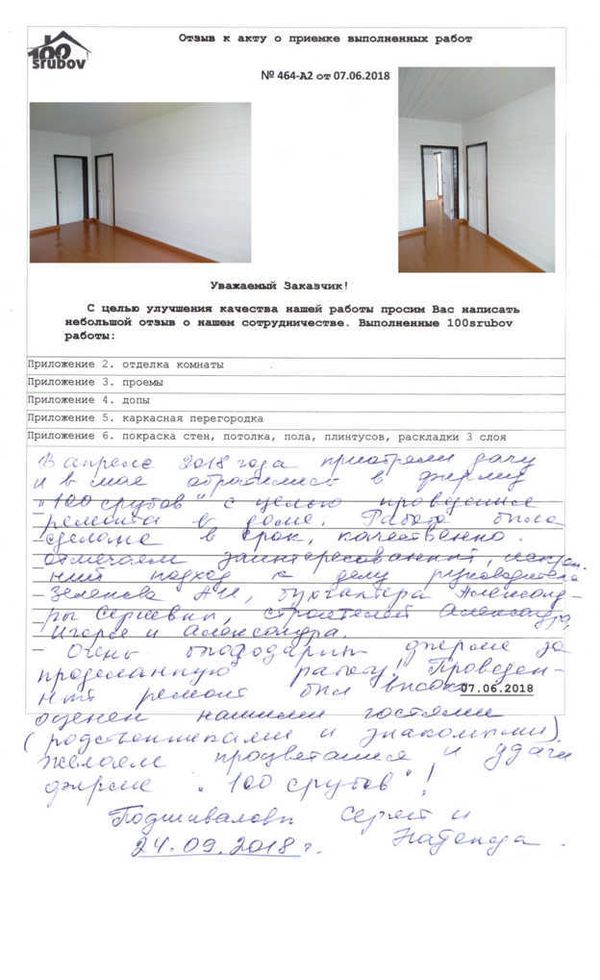 100
srubov
Отзыв к акту о приемке выполненных работ
№ 464-А2 от 07.06.2018
Уважаемый Заказчик!
С целью улучшения качества нашей работы просим Вас написать
небольшой отзыв о нашем сотрудничестве. Выполненные 100srubov
работы:
Приложение 2. отделка комнаты
Приложение 3. проемы
Приложение 4. допы
Приложение 5. каркасная перегородка
Приложение 6. покраска стен, потолка, пола, плинтусов, раскладки 3 слоя
В апреле 2018 года приобрели дачу
и в мае обратились в фирму
"100 срубов" с целью проведения
ремонта в доме. Работа была
сделана в срок, качественно.
Отмечаем заинтересованный, искрен-
ний подход к делу руководителя
Зеленова АИ, бухгалтера Александ-
ры Сергеевны, строителей Александра,
Игоря и Александра.
Очень благодарны фирме за
проделанную работу! Проведен-
ный ремонт был высоко
07.06.2018
оценен нашими гостями
(родственниками и знакомыми).
Желаем процветания и удачи
фирме "100 срубов"!
Подшиваловы Сергей и
Надежда.
24.09.2018 г.